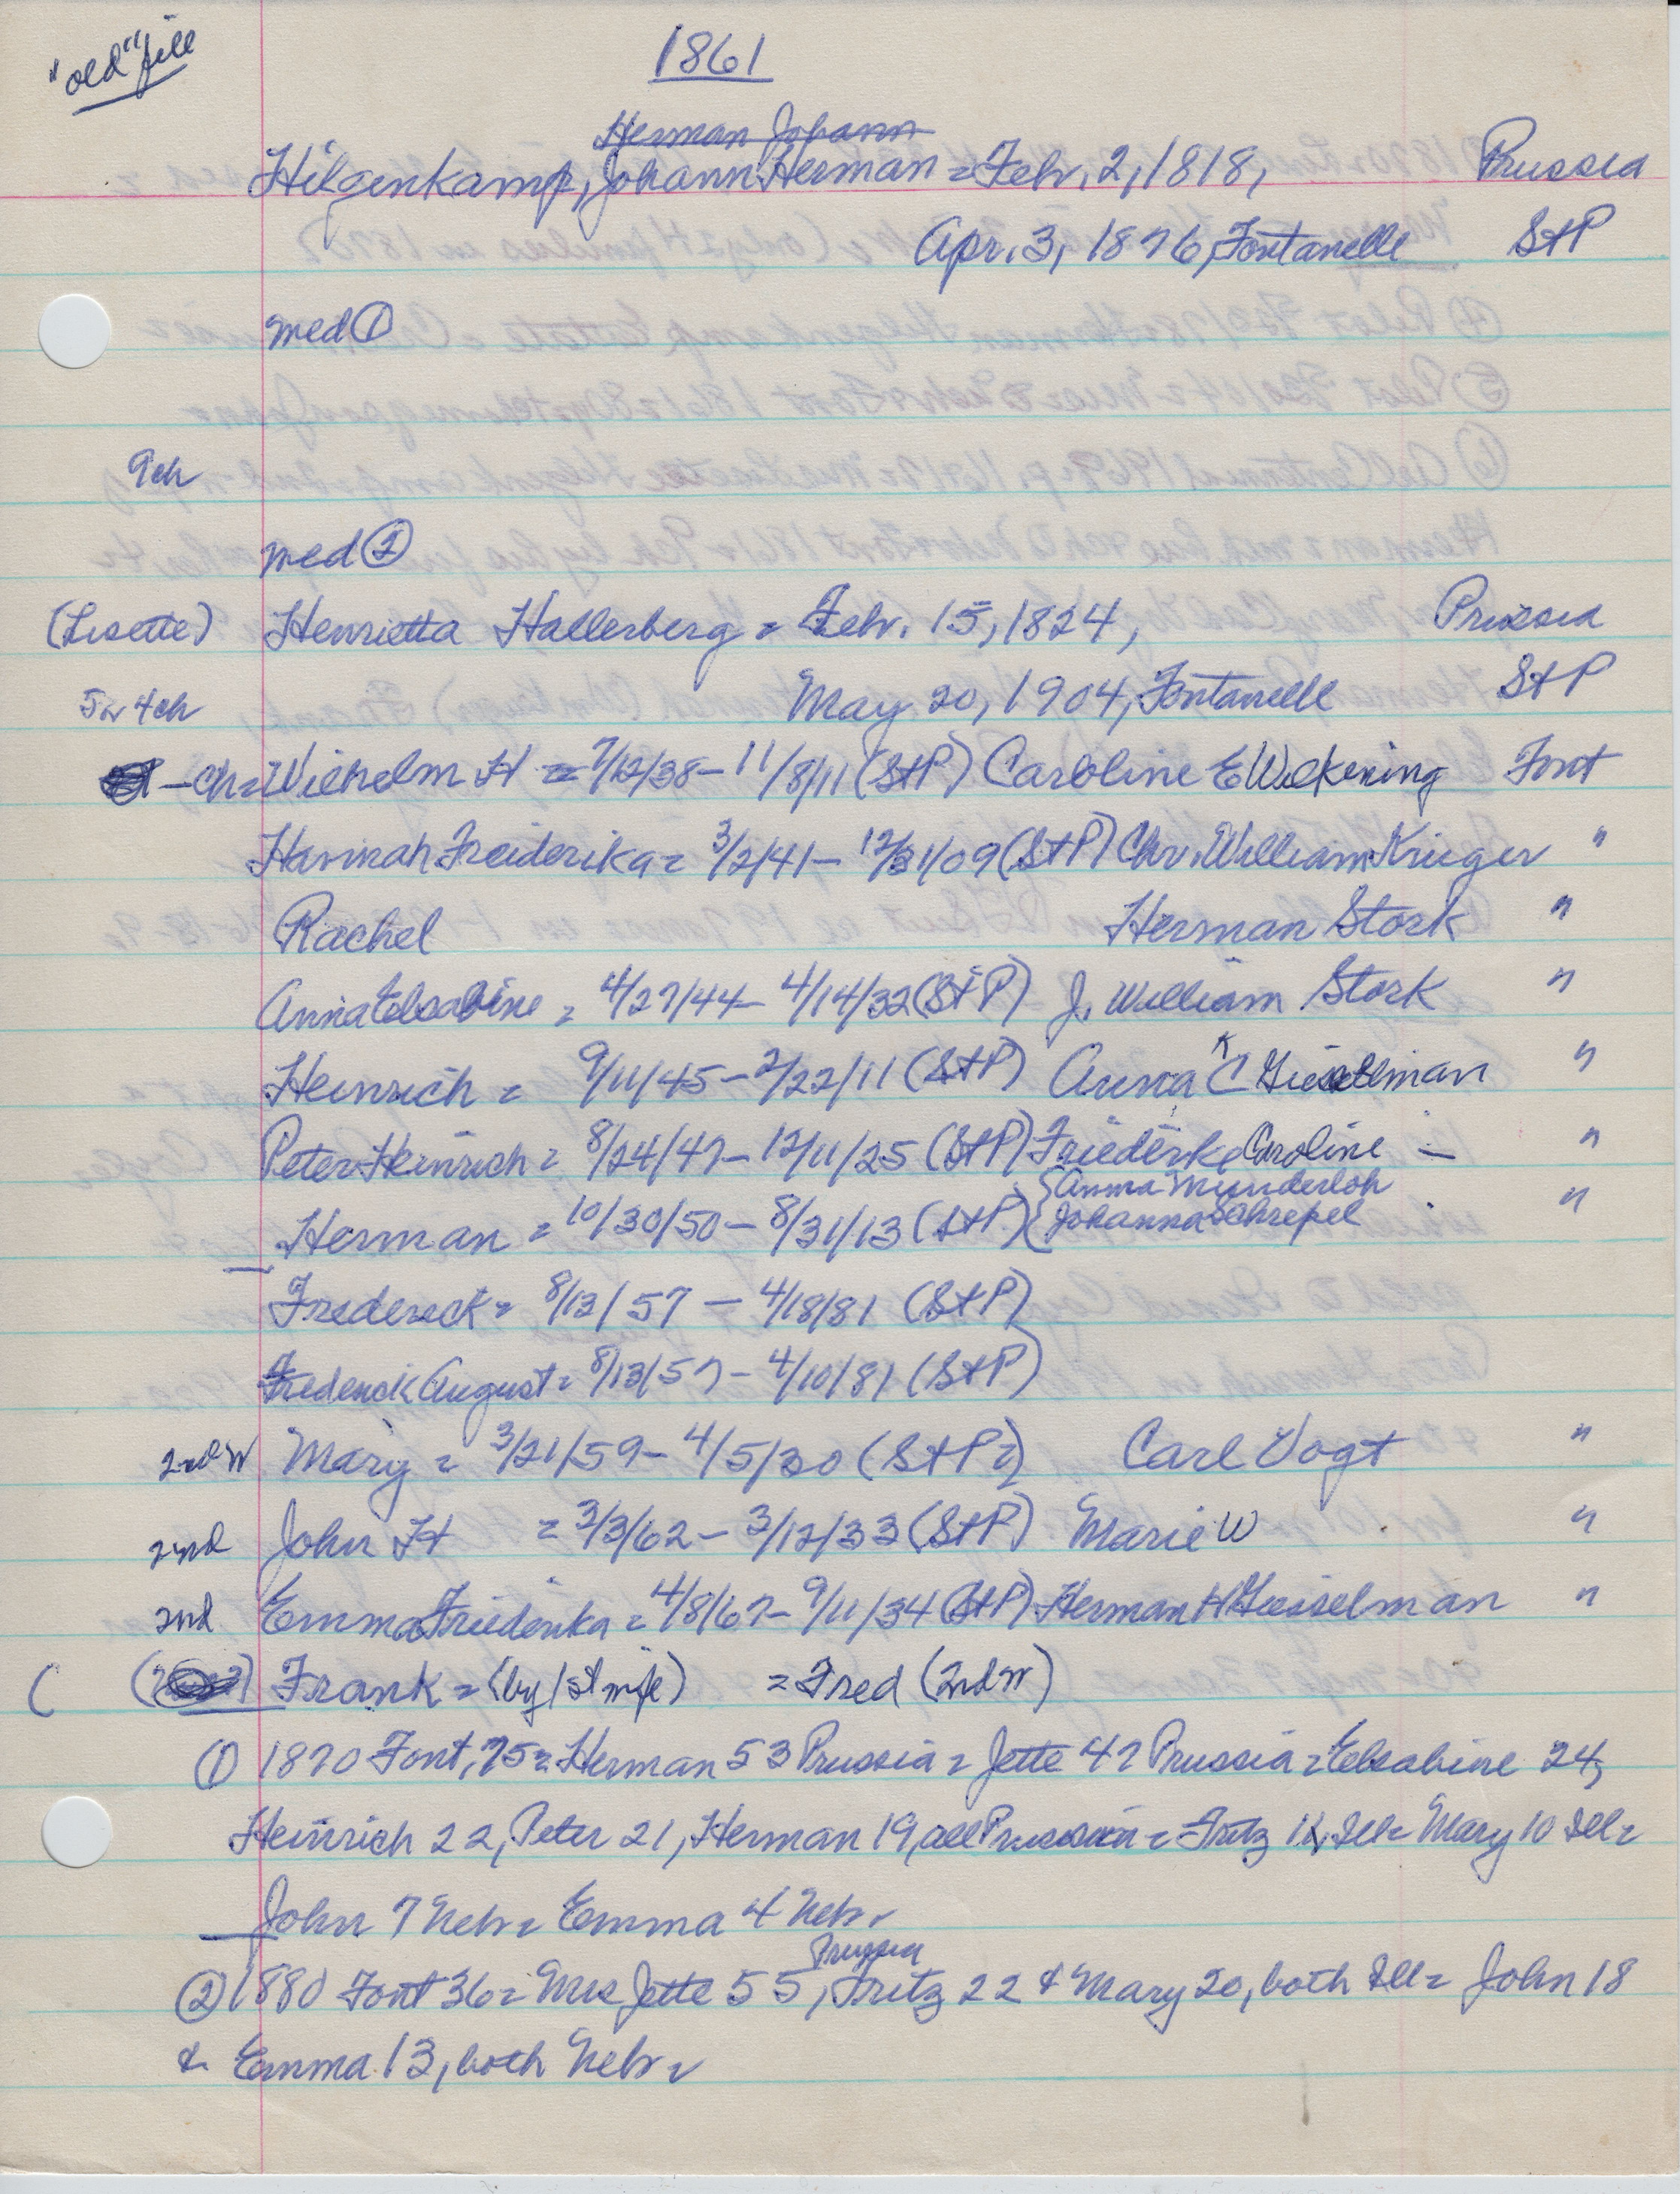 "old" file
1861
Herman Johann
Hilgenkamp, Johann Herman = Febr. 2, 1818, Prussia
Apr. 3, 1876, Fontanelle St P
med ①
9ch
med ②
(Lisette) Henrietta Hallerberg = Febr. 15, 1824, Prussia
5 or 4ch May 20, 1904, Fontanelle St P
- ch = Wilhelm H = 7/12/38 - 11/8/11 (St P) Caroline E Wilkening Font
Hannah Freiderika = 3/2/41 - 12/31/09 (St P) Chr. William Krieger "
Rachel Herman Stork "
Anna Elsabine = 4/27/44 - 4/14/32 (St P) J. William Stork "
Heinrich = 9/11/45 - 2/22/11 (St P) Anna K C Giesselman "
Peter Heinrich = 8/24/47 - 12/11/25 (St P) Friederke Caroline — "
Herman = 10/30/50 - 8/31/13 (St P) { Anna Munderloh "
{ Johanna Schrepel
Frederick = 8/13/57 - 4/18/81 (St P)
Frederick August = 8/13/57 - 4/10/81 (St P)
2nd W Mary = 3/21/59 - 4/5/30 (St P =) Carl Vogt "
2nd John H = 3/3/62 - 3/12/33 (St P) Marie W "
2nd Emma Friederika = 4/8/67 - 9/11/34 (St P) Herman H Giesselman "
( Frank = (by 1st wife) = Fred (2nd W)
① 1870 Font, 75 = Herman 53 Prussia = Jette 47 Prussia = Elsabine 24,
Heinrich 22, Peter 21, Herman 19, all Prussian = Fritz 11, Ill = Mary 10 Ill =
John 7 Nebr = Emma 4 Nebr
Prussia
② 1880 Font 36 = Mrs Jette 55, Fritz 22 & Mary 20, both Ill = John 18
& Emma 13, both Nebr